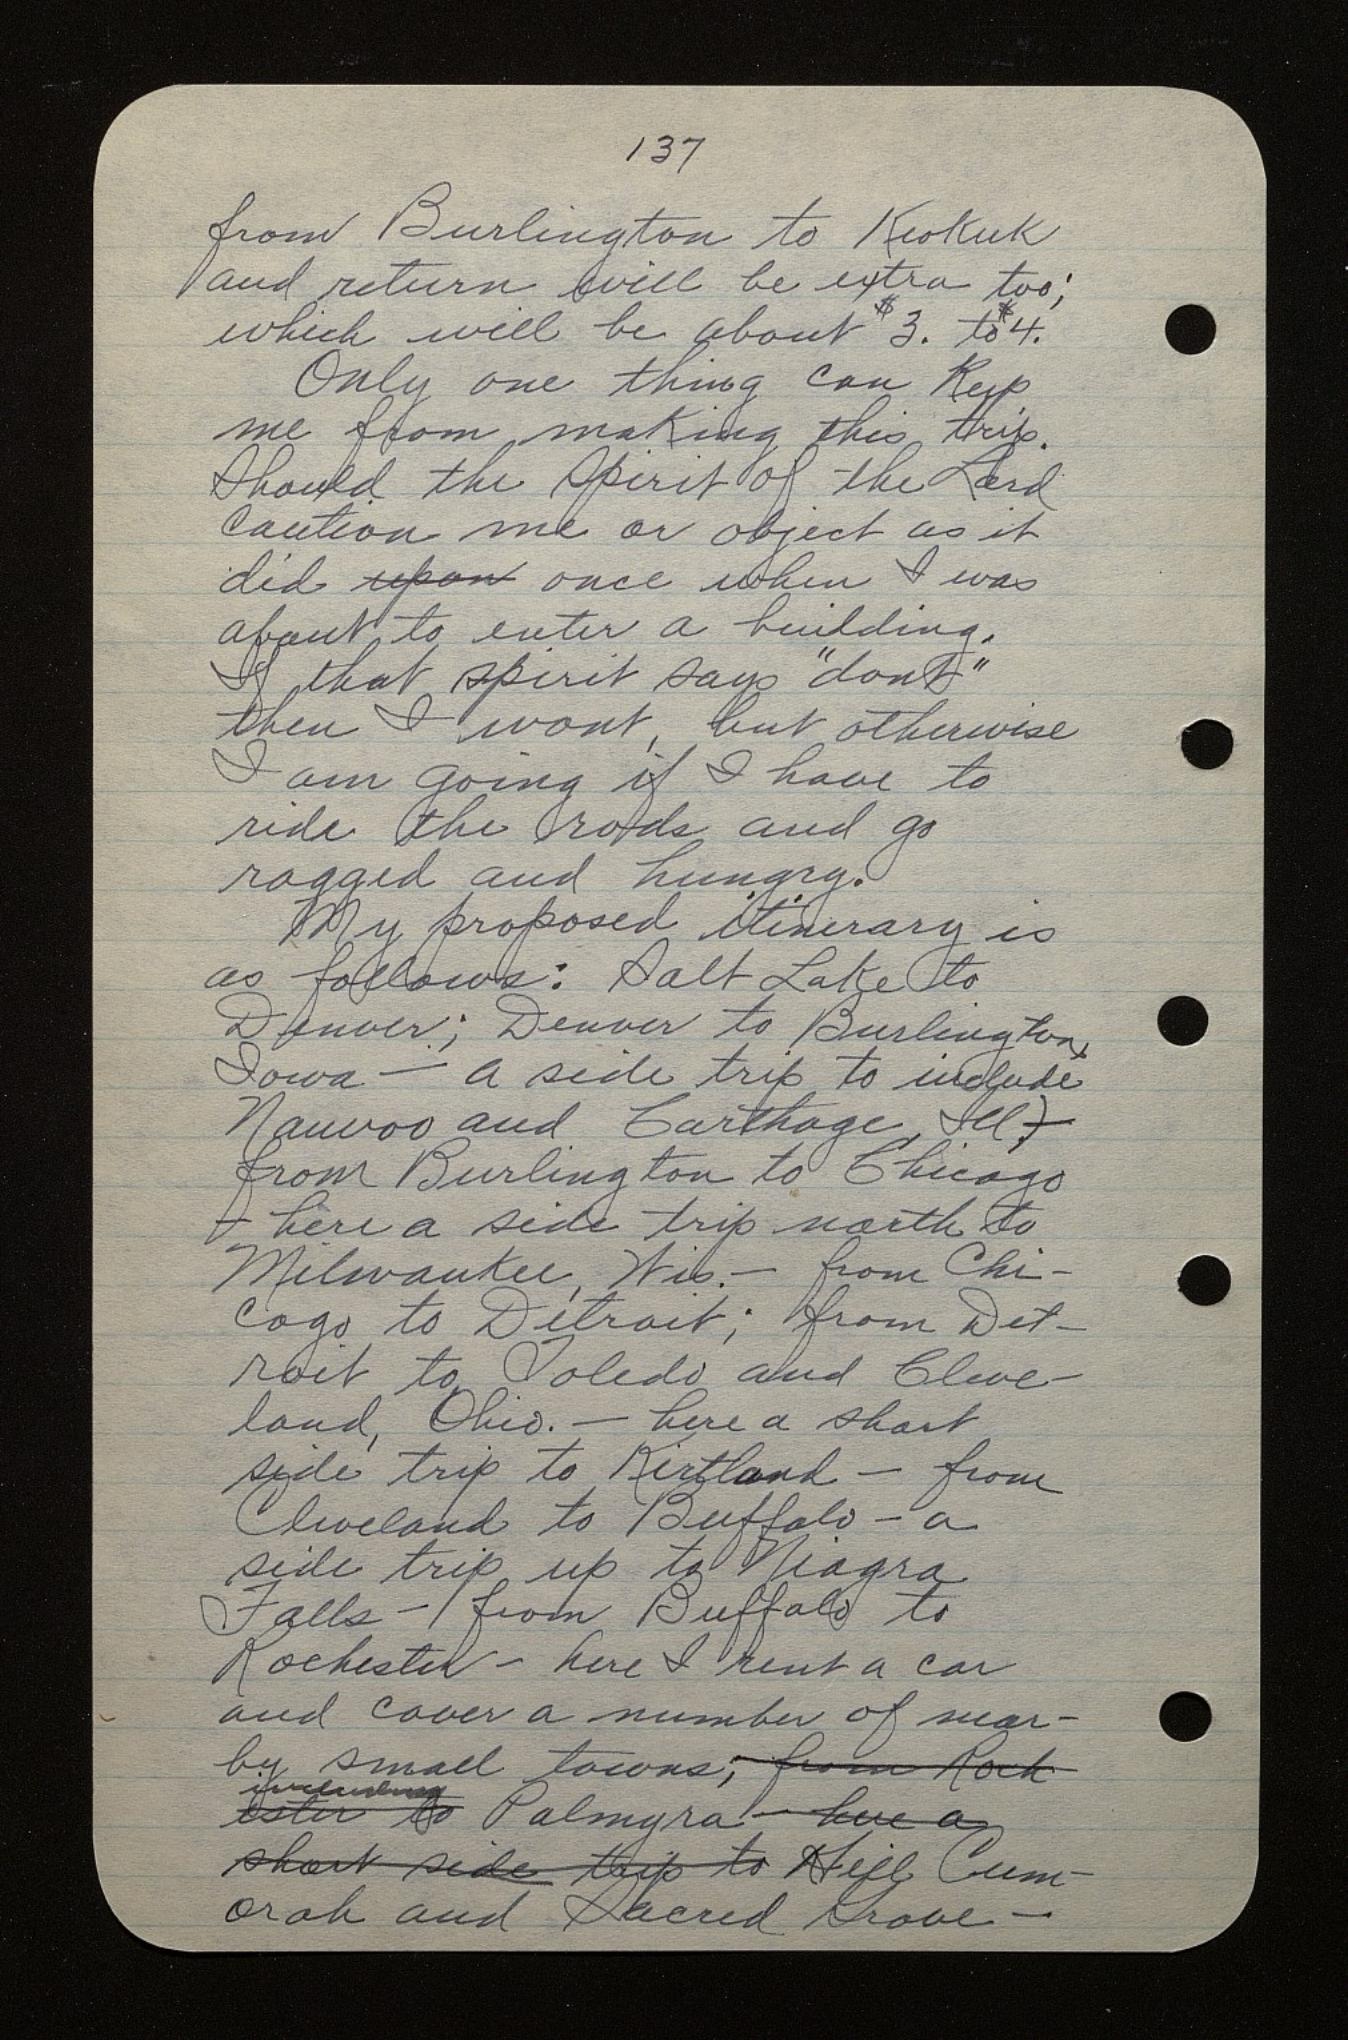 137
from Burlington to Keokuk
and return will be extra too;
which will be about $3. to $4.
Only one thing can keep
me from making this trip.
Should the Spirit of the Lord
caution me or object as it
did upon once when I was
about to enter a building.
If that spirit says "dont"
then I wont, but otherwise
I am going if I have to
ride the rods and go
ragged and hungry.
My proposed itinerary is
as follows: Salt Lake to
Denver; Denver to Burlington,
Iowa — a side trip to include
Nauvoo and Carthage, Ill; —
from Burlington to Chicago
— here a side trip north to
Milwaukee, Wis. — from Chi-
cago to Detroit; from Det-
roit to Toledo and Cleve-
land, Ohio. — here a short
side trip to Kirtland — from
Cleveland to Buffalo — a
side trip up to Niagra
Falls — from Buffalo to
Rochester — here I rent a car
and cover a number of near-
by small towns; from Roch
including
ester to Palmyra — here a
short side trip to Hill Cum-
orah and Sacred Grove —